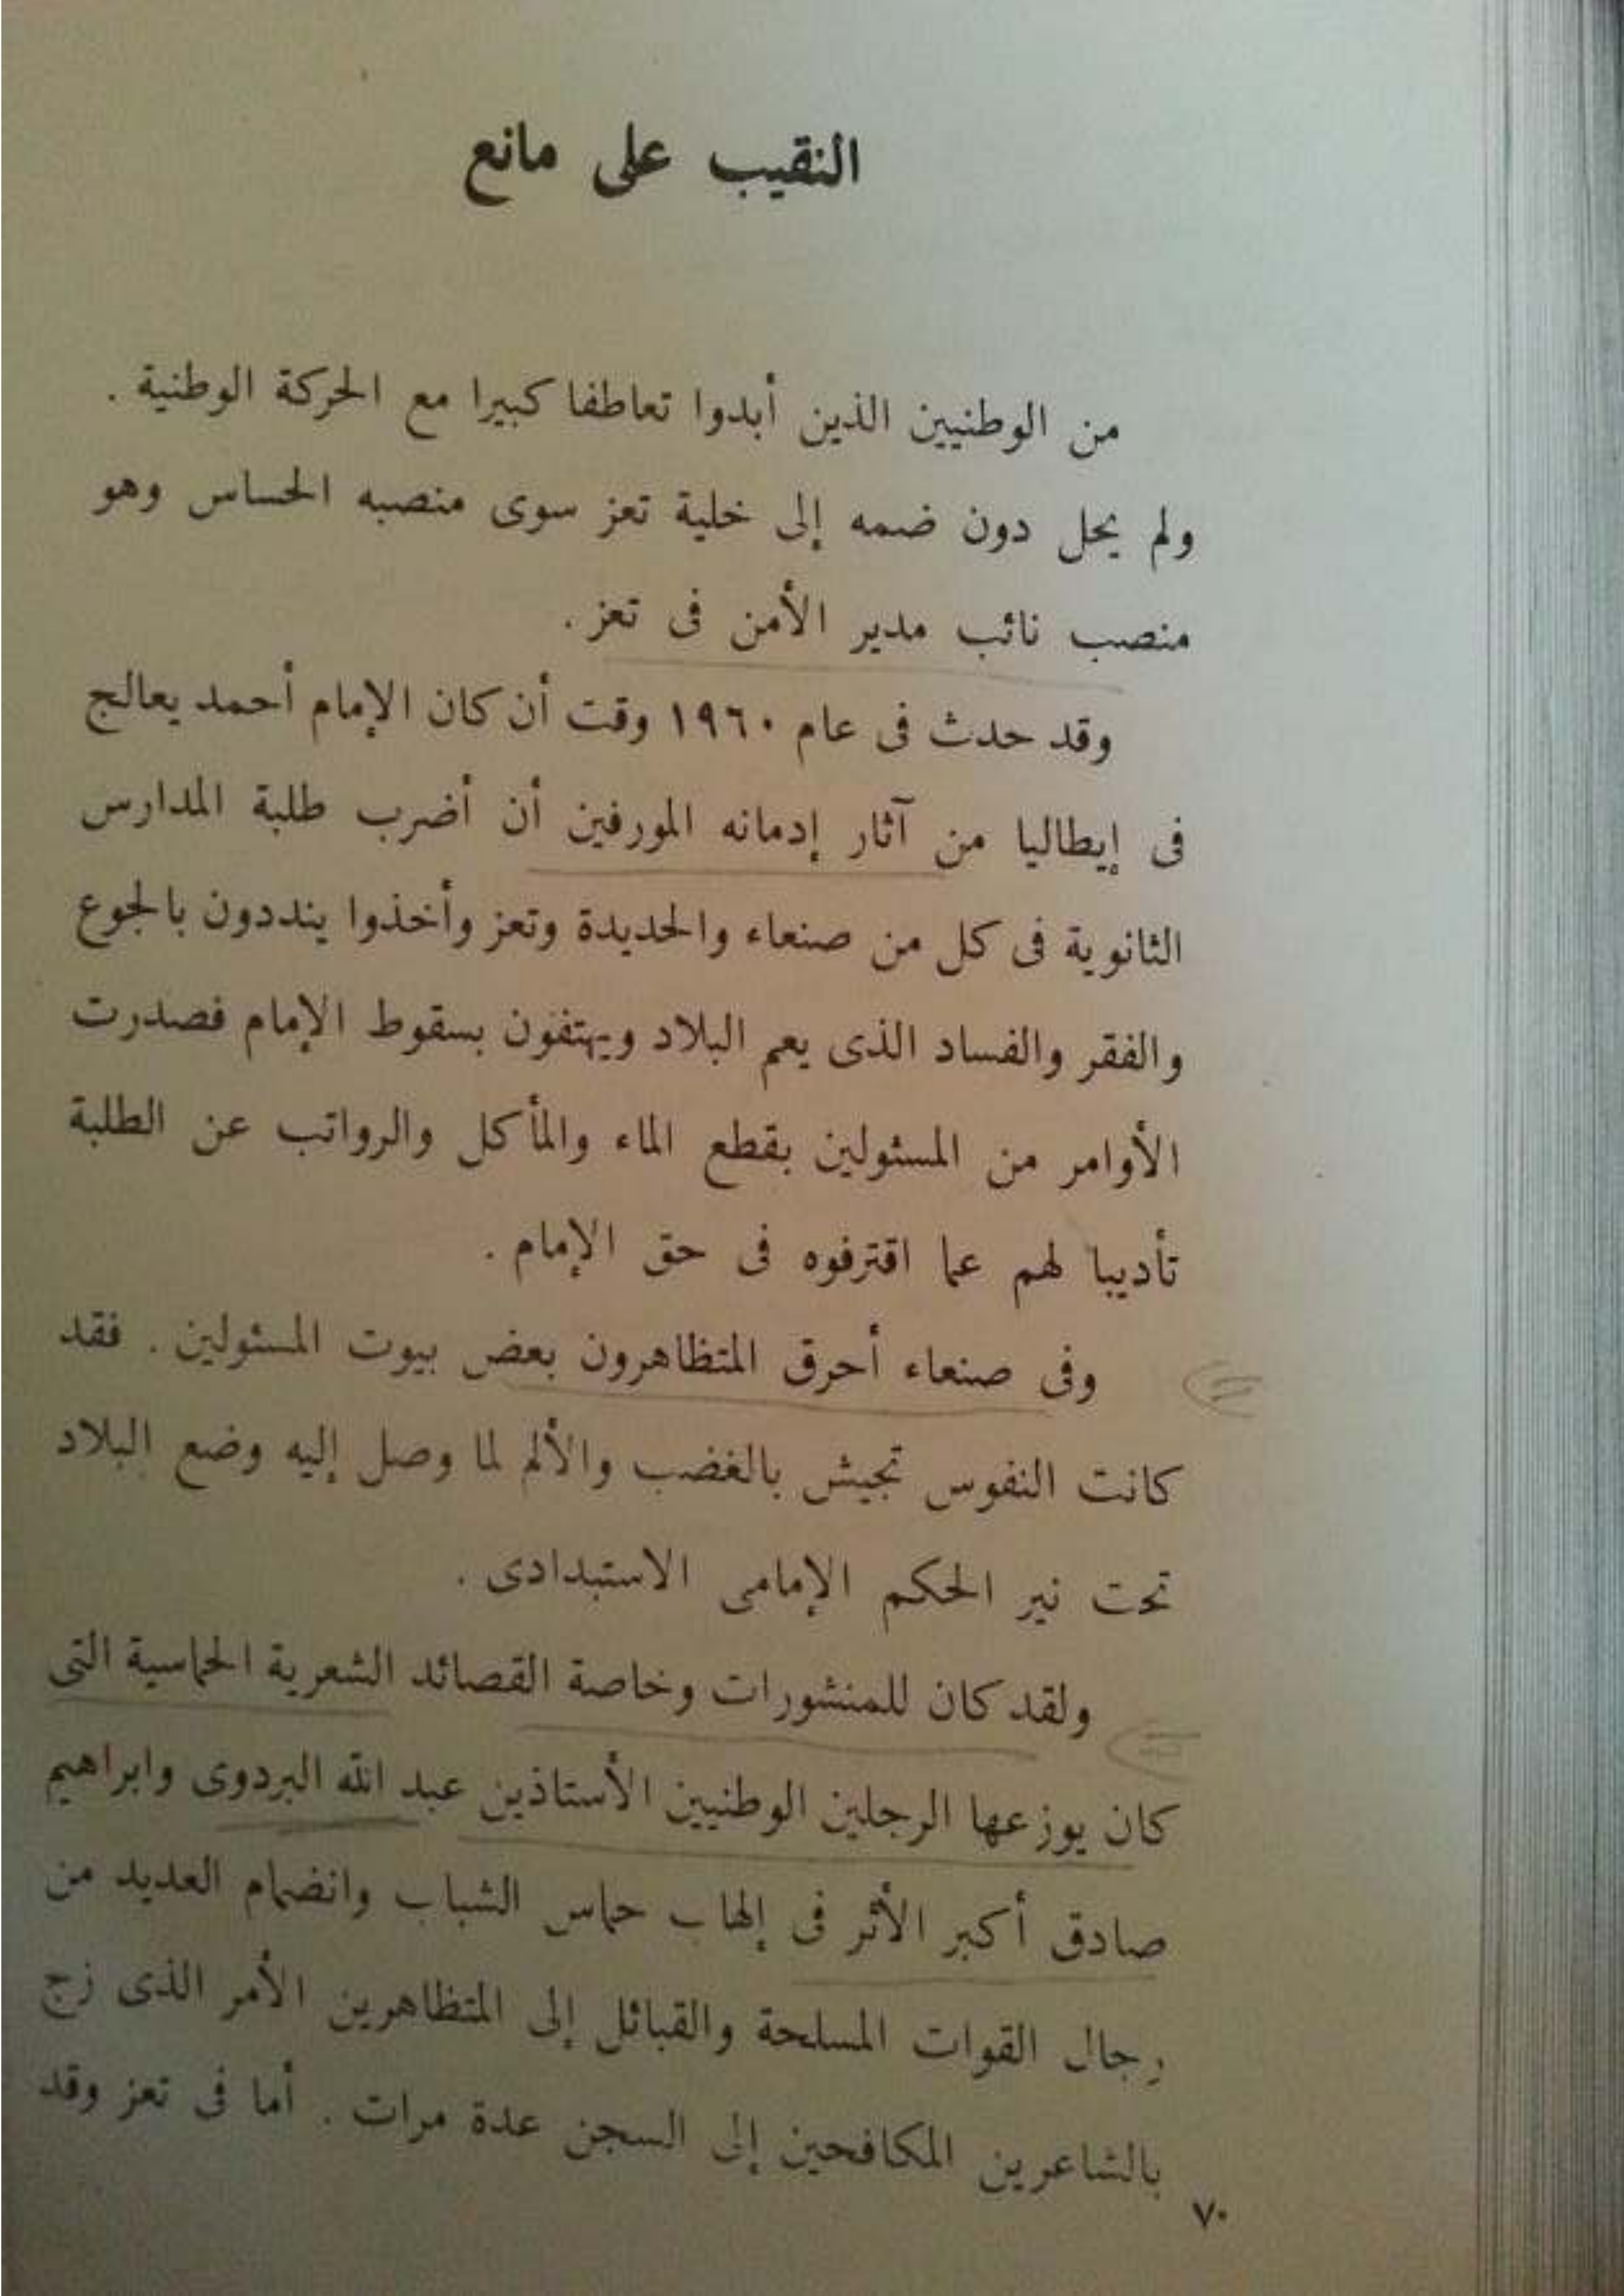 النقيب على مانع
من الوطنيين الذين أبدوا تعاطفا كبيرا مع الحركة الوطنية .
ولم يحل دون ضمه إلى خلية تعز سوى منصبه الحساس وهو
منصب نائب مدير الأمن فى تعز .
وقد حدث فى عام ١٩٦٠ وقت أن كان الإمام أحمد يعالج
فى إيطاليا من آثار إدمانه المورفين أن أضرب طلبة المدارس
الثانوية فى كل من صنعاء والحديدة وتعز وأخذوا ينددون بالجوع
والفقر والفساد الذى يعم البلاد ويهتفون بسقوط الإمام فصدرت
الأوامر من المسئولين بقطع الماء والمأكل والرواتب عن الطلبة
تأديبا لهم عما اقترفوه فى حق الإمام .
وفى صنعاء أحرق المتظاهرون بعض بيوت المسئولين . فقد
كانت النفوس تجيش بالغضب والألم لما وصل إليه وضع البلاد
تحت نير الحكم الإمامى الاستبدادى .
ولقد كان للمنشورات وخاصة القصائد الشعرية الحماسية التى
كان يوزعها الرجلين الوطنيين الأستاذين عبد الله البردوى وابراهيم
صادق أكبر الأثر فى إلهاب حماس الشباب وانضمام العديد من
رجال القوات المسلحة والقبائل إلى المتظاهرين الأمر الذى زج
بالشاعرين المكافحين إلى السجن عدة مرات . أما فى تعز وقد
٧٠